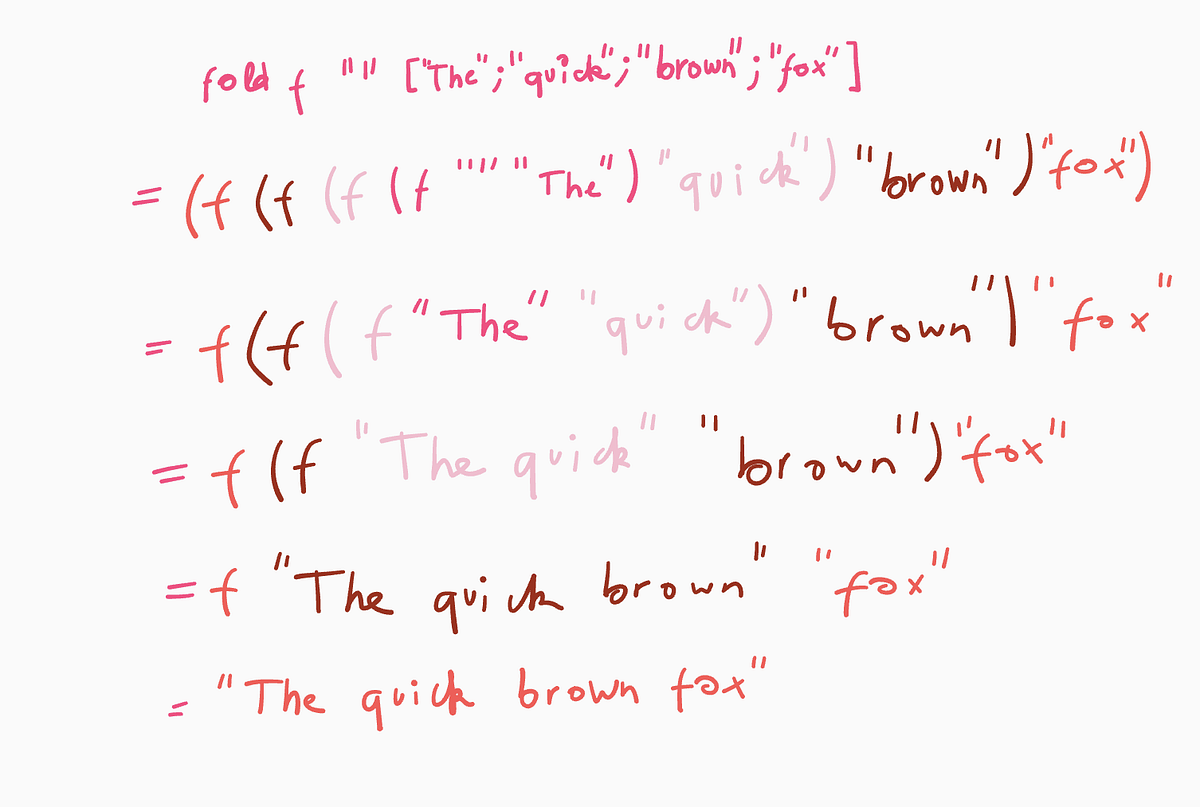 fold f "" ["The";"quick";"brown";"fox"]
= (f (f (f (f "" "The") "quick") "brown") "fox")
= f (f (f "The" "quick") "brown") "fox"
= f (f "The quick" "brown") "fox"
= f "The quick brown" "fox"
= "The quick brown fox"